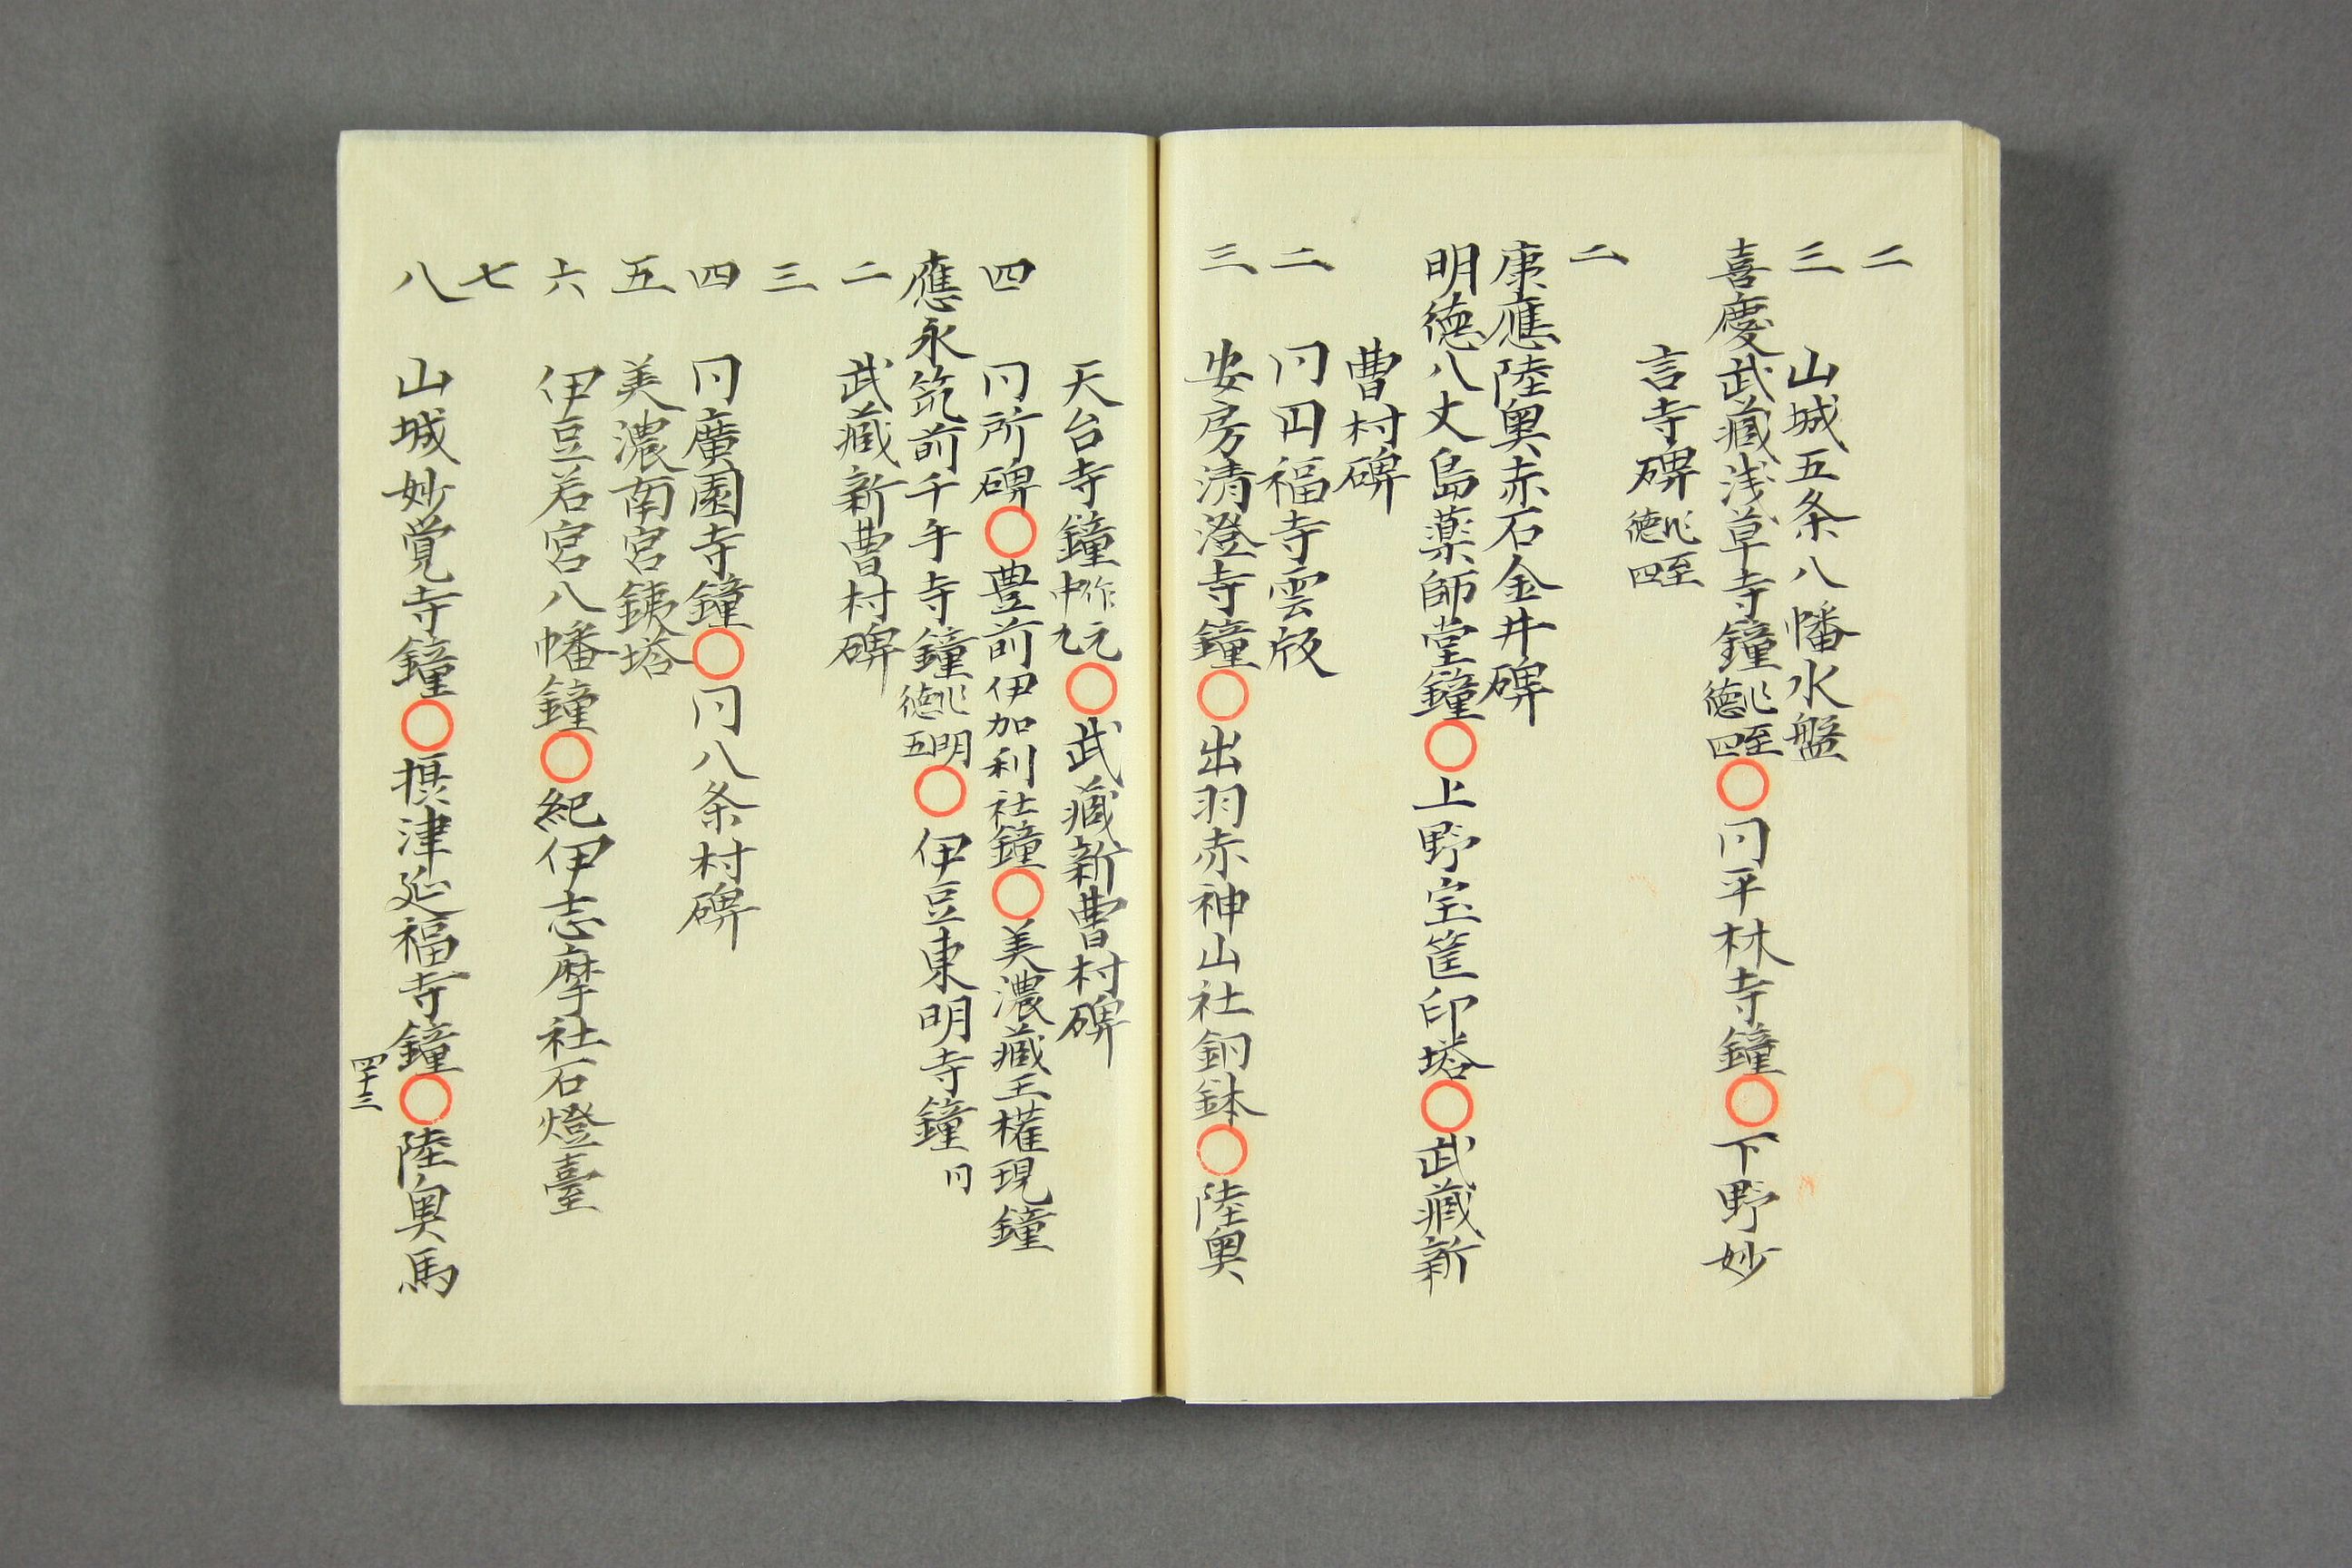 二
三 山城五条八幡水盤
喜慶武藏浅草寺鐘 至德四 〇同平林寺鐘〇下野妙
言寺碑 至德四
二
康應陸奥赤石金井碑
明德八丈島薬師堂鐘〇上野宝筐印塔〇武藏新
曹村碑
二 同円福寺雲版
三 安房清澄寺鐘〇出羽赤神山社銅鉢〇陸奥
天台寺鐘 作元中九〇武藏新曹村碑
四 同所碑〇豊前伊加利社鐘〇美濃藏王権現鐘
應永筑前千手寺鐘 明德五〇伊豆東明寺鐘 同
二 武藏新曹村碑
三
四 同廣園寺鐘〇同八条村碑
五 美濃南宮鉄塔
六 伊豆若宮八幡鐘〇紀伊志摩社石燈臺
七
八 山城妙覚寺鐘〇摂津延福寺鐘〇陸奥馬
四十三